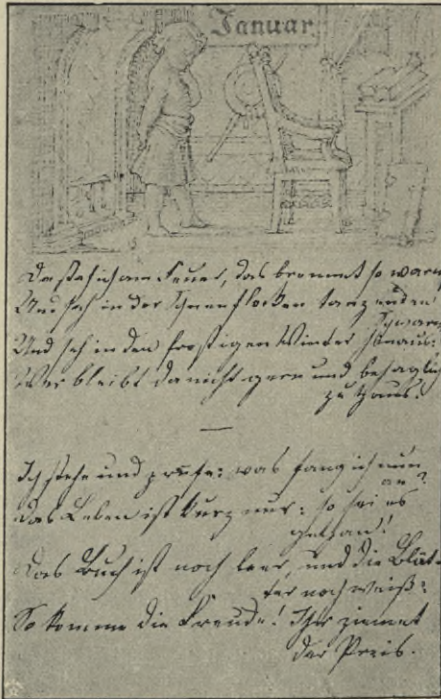 Januar
Da steh ich am Feuer, das brennt so warm
Und seh in der Schneeflocken tanzenden
Schwarm
Und seh in den frostigen Winter hinaus:
Wer bleibt da nicht gern und behaglich
zu Haus?
Ich stehe und prüfe: was fang ich nun
an?
Das Leben ist kurz nur: so sei es
gethan!
Das Buch ist noch leer, und die Blät-
ter noch weiß:
So komme die Freude! Ihr ziemet
der Preis.